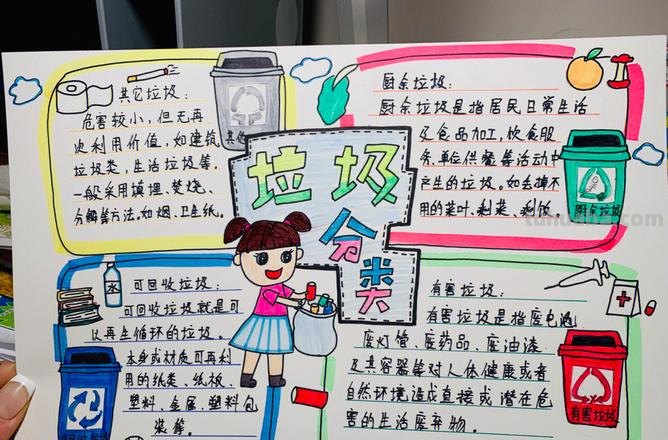 其它垃圾：
危害较小，但无再
次利用价值，如建筑
垃圾类，生活垃圾等，
一般采用填埋、焚烧、
分解等方法。如烟、卫生纸。
其他
垃圾
分类
厨余垃圾：
厨余垃圾是指居民日常生活
及食品加工，饮食服
务、单位供餐等活动中
产生的垃圾。如丢掉不
用的菜叶、剩菜、剩饭。
厨余垃圾
可回收垃圾：
可回收垃圾就是可
以再生循环的垃圾。
本身或材质可再利
用的纸类、纸板、
塑料、金属、塑料包
装等。
水
有害垃圾：
有害垃圾是指废电池
废灯管、废药品、废油漆
及其容器等对人体健康或者
自然环境造成直接或潜在危
害的生活废弃物。
有害垃圾